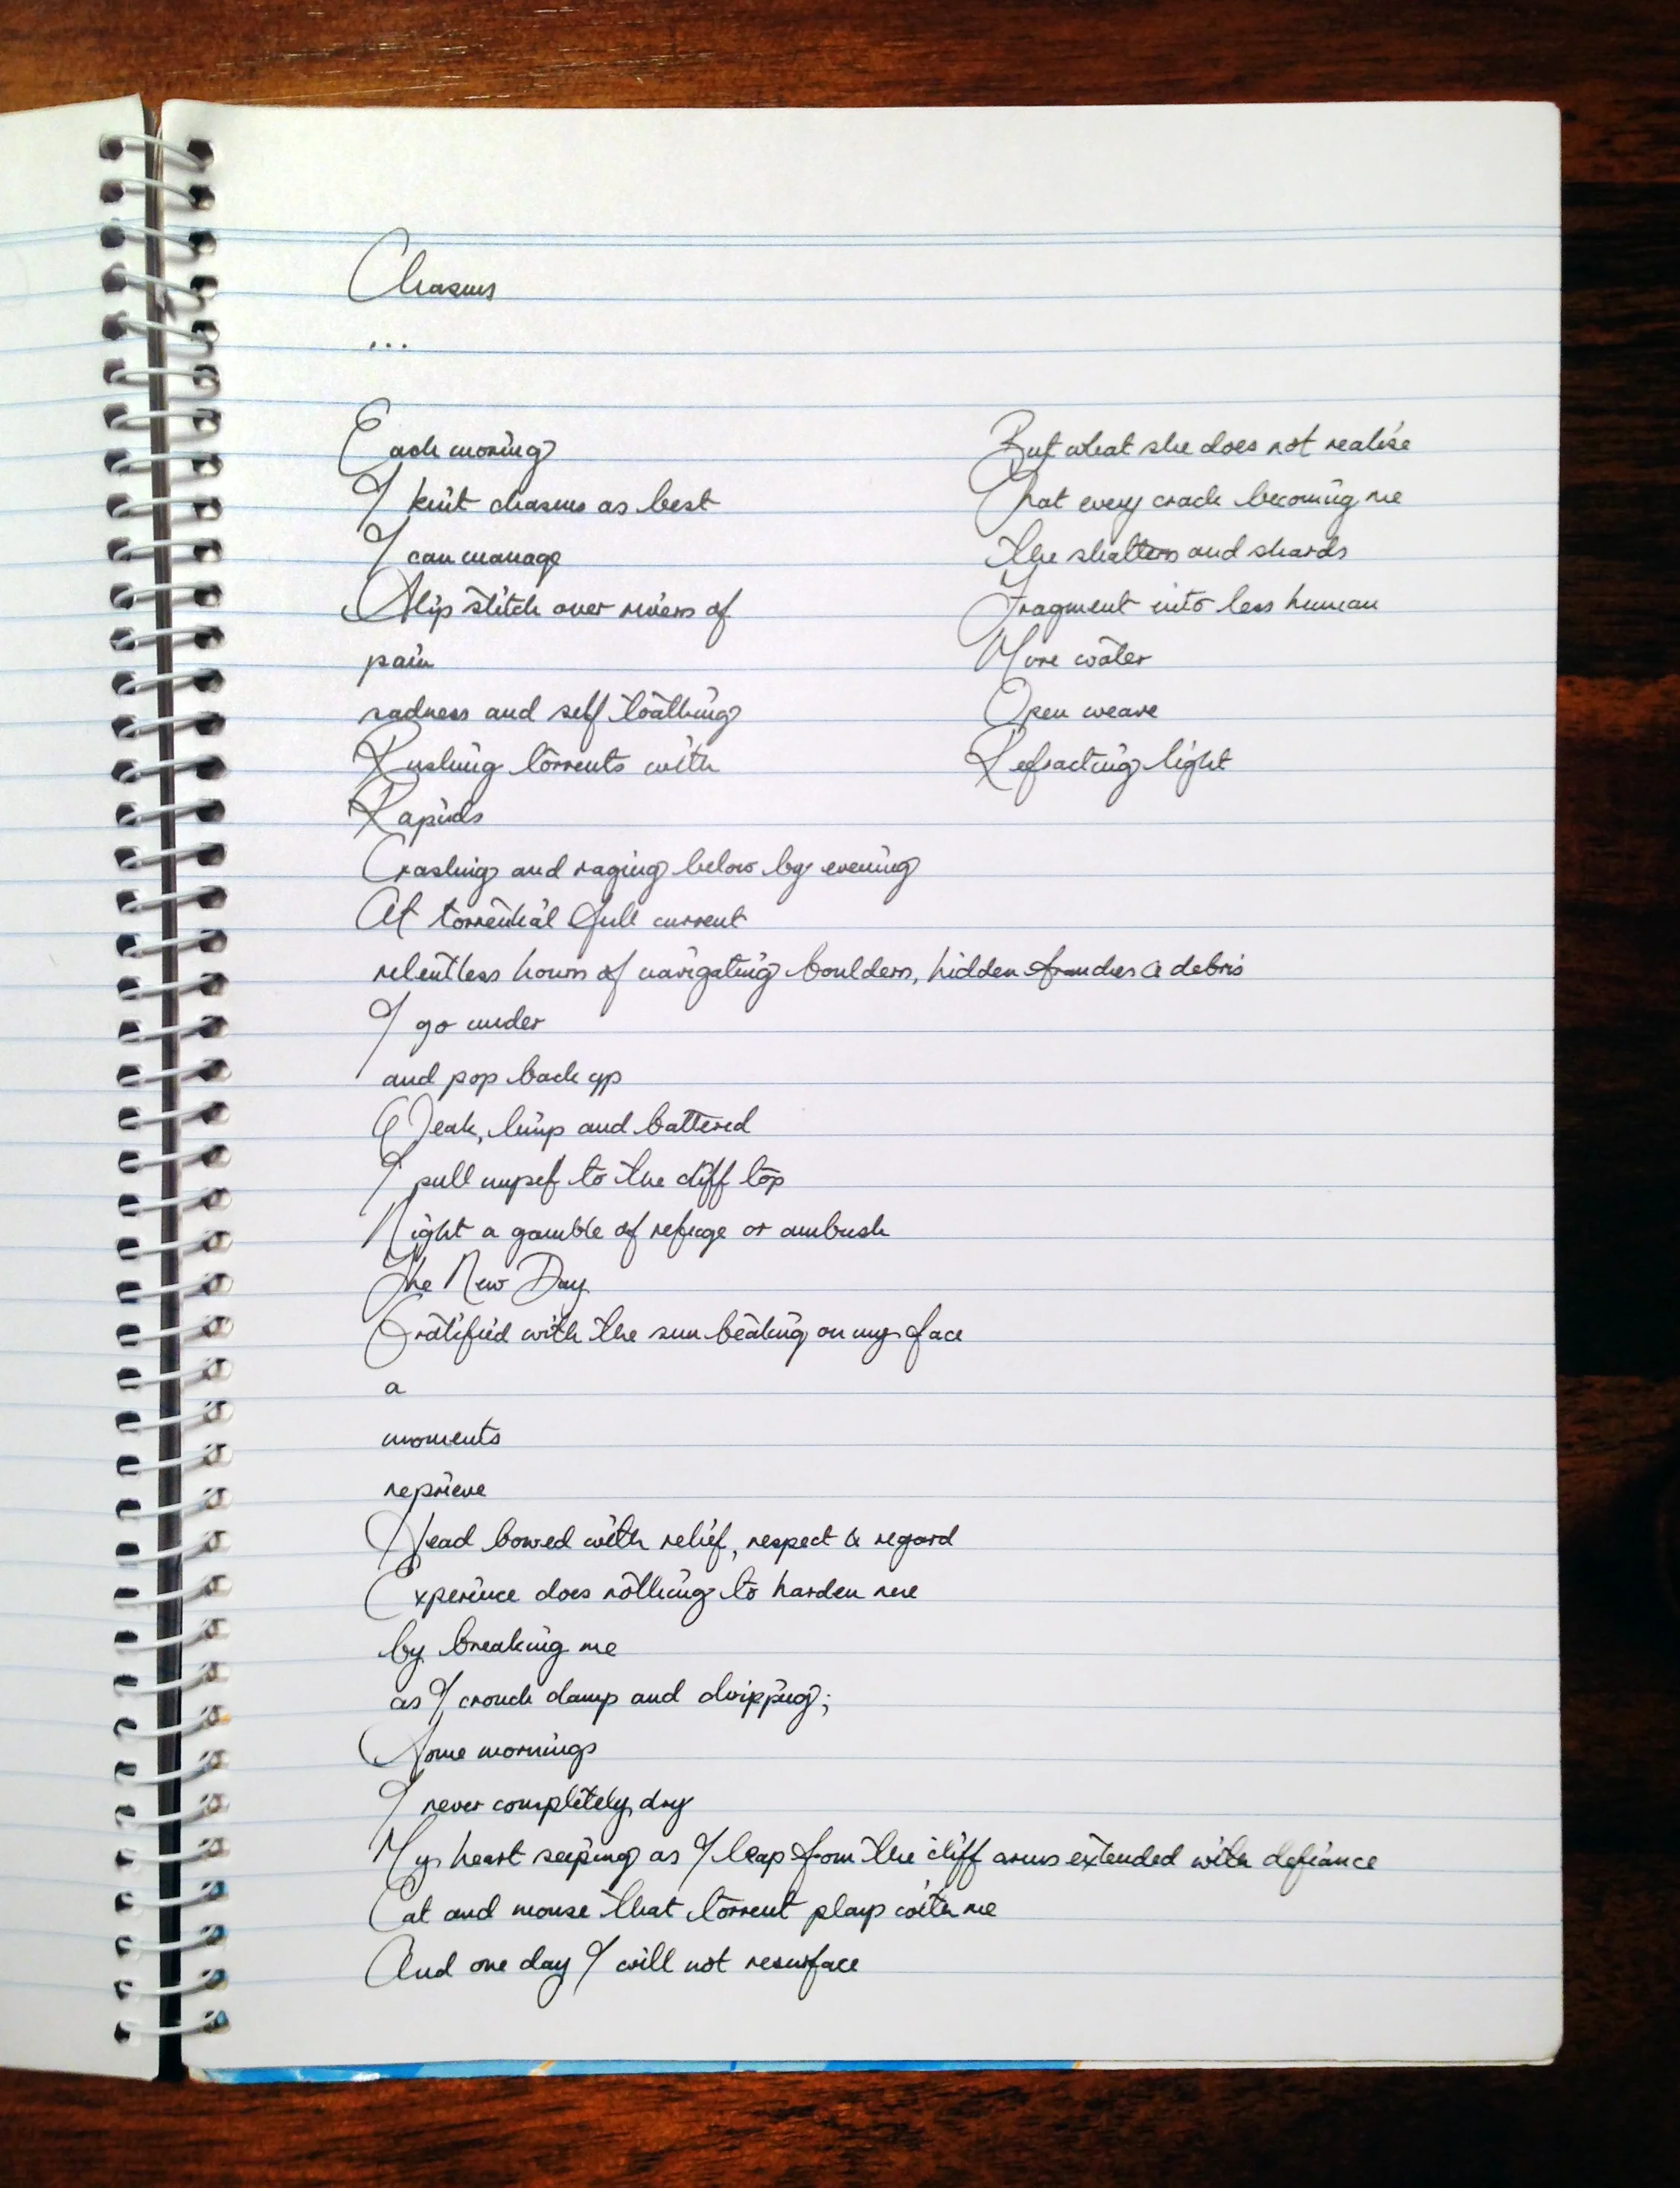 Chasms
...
Each moring
I knit chasms as best
I can manage
Slip stitch over rivers of
pain
sadness and self loathing
Rushing torrents with
Rapids
Crashing and raging below by evening
At torrential full current
relentless hours of navigating boulders, hidden & debris
I go under
and pop back up
Weak, limp and battered
I pull myself to the cliff top
Night a gamble of refuge or ambush
The New Day
Gratified with the sun beating on my face
a
moments
reprieve
Head bowed with relief, respect & regard
Experince does nothing to harden me
by breaking me
as I crouch damp and dripping;
Some mornings
I never completely dry
My heart seeping as I leap from the cliff arms extended with defiance
Cat and mouse that torrent plays with me
And one day I will not resurface
But what she does not realise
That every crack becoming me
the shatters and shards
Fragment into less human
More water
Open weave
Refracting light